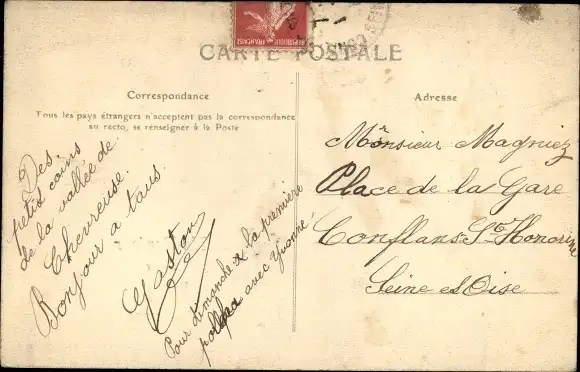 REPUBLIQUE FRANÇAISE
CARTE POSTALE
Correspondance
Tous les pays étrangers n'acceptent pas la correspondance
au recto, se renseigner à la Poste
Des
petis coins
de la vallée de
Chevreuse.
Bonjour a tous
Gaston
Pour demande a la première
polka avec Yvonne
Adresse
Monsieur Magniez
Place de la Gare
Conflans-Ste Honorine
Seine et Oise